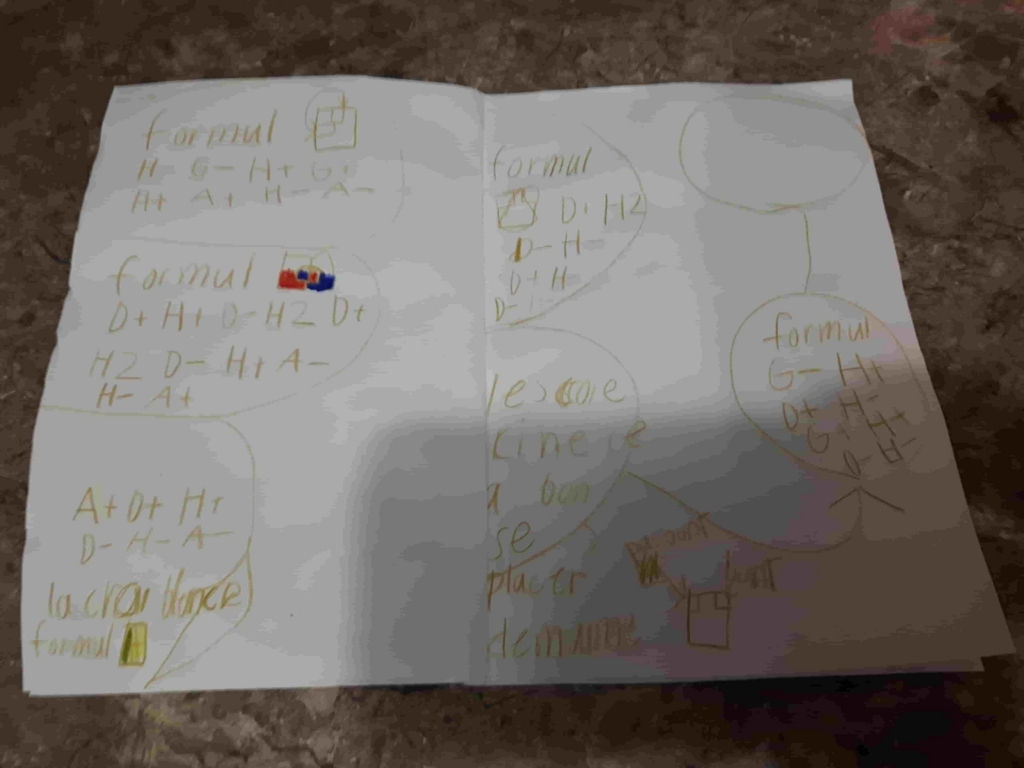 formul
H- G- H+ G+
H+ A+ H- A-
formul
D+ H+ D- H2 D+
H2 D- H+ A-
H- A+
A+ D+ H+
D- H- A-
la croi blance
formul
formul
D+ H2
D- H-
D+ H-
D-
les
a bon
se
placer
formul
G- H+
D+ H-
G+ H+
D- H-